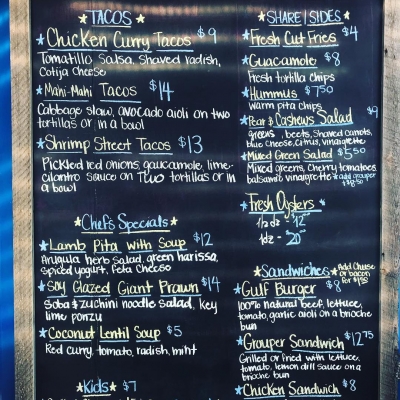 TACOS
Chicken Curry Tacos $9
Tomatillo Salsa, shaved radish,
Cotija Cheese
Mahi-Mahi Tacos $14
Cabbage slaw, avocado aioli on two
tortillas or in a bowl
Shrimp Street Tacos $13
Pickled red onions, guacamole, lime-
cilantro sauce on Two tortillas or in
a bowl
Chef's Specials
Lamb Pita with Soup $12
Arugula herb salad, green harissa,
spiced yogurt, Feta Cheese
Soy Glazed Giant Prawn $14
Soba & zuchini noodle salad, key
lime ponzu
Coconut Lentil Soup $5
Red curry, tomato, radish, mint
Kids $7
SHARE | SIDES
Fresh Cut Fries $4
Guacamole $8
Fresh tortilla chips
Hummus $7.50
warm pita chips
Pear & Cashews Salad $9
greens, beets, shaved carrots,
blue cheese, citrus, vinaigrette
Mixed Green Salad $5.50
Mixed greens, cherry tomatoes,
balsamic vinaigrette add grouper
+$8.50
Fresh Oysters
1/2 dz - $12
1dz - $20
Sandwiches Add Cheese
or bacon
for $1.50
Gulf Burger $8
100% natural beef, lettuce,
tomato, garlic aioli on a brioche
bun
Grouper Sandwich $12.75
Grilled or fried with lettuce,
tomato, lemon dill sauce on a
brioche bun
Chicken Sandwich $8